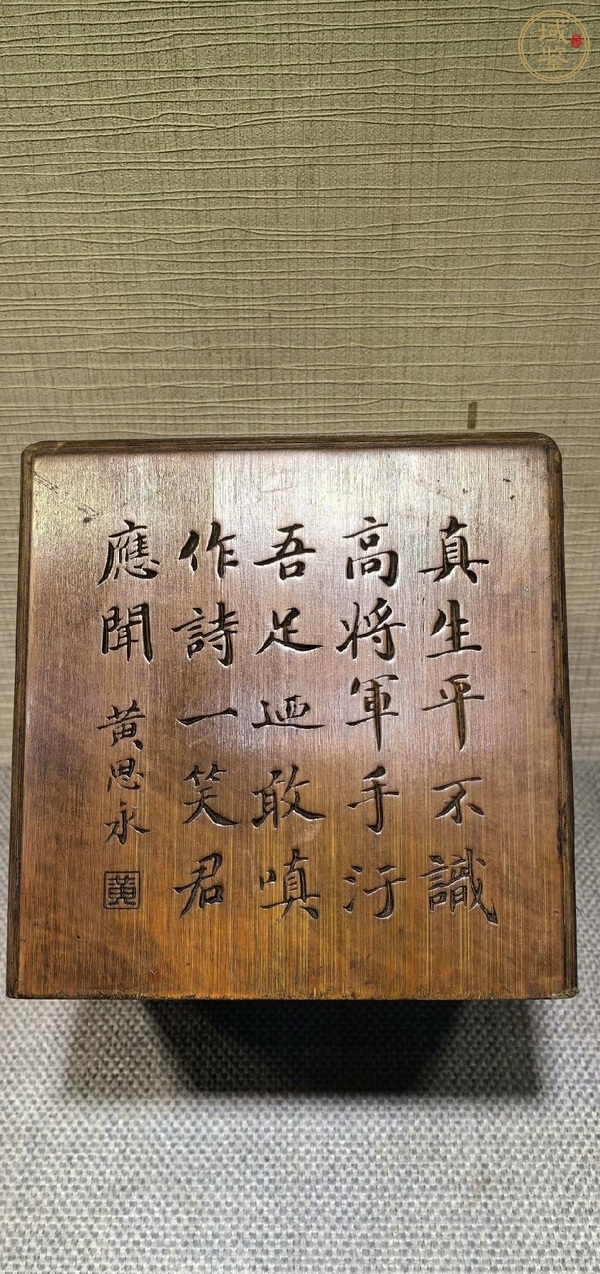 真生平不識
高將軍手汙
吾足迺敢嗔
作詩一笑君
應聞
黃思永
黃
域鉴